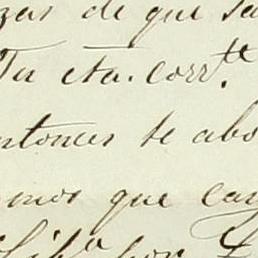 zas de que sa
Tu cta. corr.te
ntonces te abo
mos que car